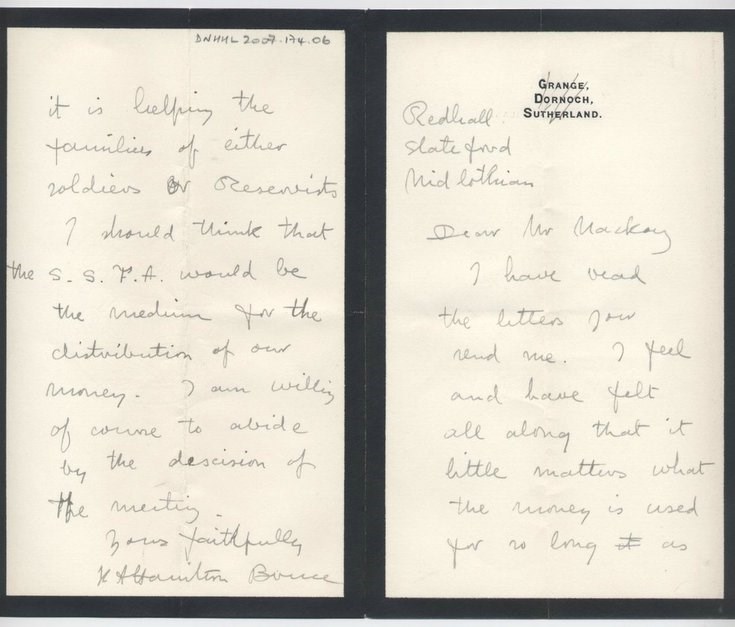 GRANGE,
DORNOCH,
SUTHERLAND.
Redhall
Slateford
Midlothian
Dear Mr Mackay
I have read
the letters you
send me. I feel
and have felt
all along that it
little matters what
the money is used
for so long it as
DNHHL 2007.174.06
it is helping the
families of either
soldiers or Reservists
I should think that
the S. S. F. A. would be
the medium for the
distribution of our
money. I am willing
of course to abide
by the descision of
the meeting.
Yours faithfully
Hamilton Bruce